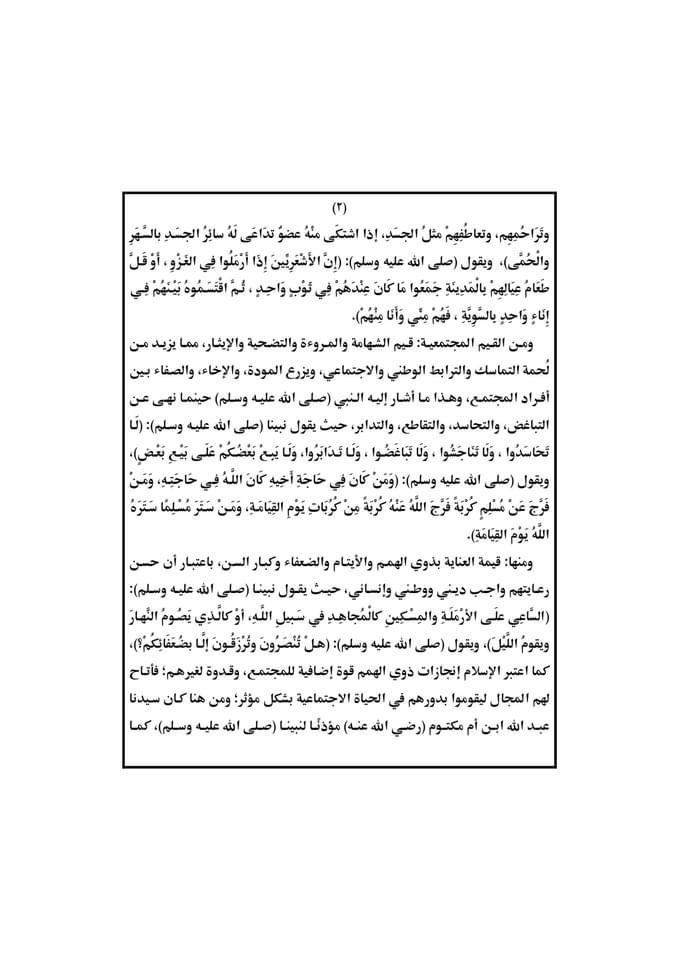 (٢)
وتَرَاحُمِهِم، وتعاطُفِهِمْ مثلُ الجسَدِ، إذا اشتكَى منْهُ عضوٌ تدَاعَى لَهُ سائِرُ الجسَدِ بالسَّهَرِ
والْحُمَّى)، ويقول (صلى الله عليه وسلم): (إِنَّ الأَشْعَرِيِّينَ إِذَا أَرْمَلُوا فِي الغَزْوِ ، أَوْ قَلَّ
طَعَامُ عِيَالِهِمْ بِالْمَدِينَةِ جَمَعُوا مَا كَانَ عِنْدَهُمْ فِي ثَوْبٍ وَاحِدٍ ، ثُمَّ اقْتَسَمُوهُ بَيْنَهُمْ فِي
إِنَاءٍ وَاحِدٍ بِالسَّوِيَّةِ ، فَهُمْ مِنِّي وَأَنَا مِنْهُمْ).
ومن القيم المجتمعية: قيم الشهامة والمروءة والتضحية والإيثار، مما يزيد من
لُحمة التماسك والترابط الوطني والاجتماعي، ويزرع المودة، والإخاء، والصفاء بين
أفراد المجتمع، وهذا ما أشار إليه النبي (صلى الله عليه وسلم) حينما نهى عن
التباغض، والتحاسد، والتقاطع، والتدابر، حيث يقول نبينا (صلى الله عليه وسلم): (لَا
تَحَاسَدُوا ، وَلَا تَنَاجَشُوا ، وَلَا تَبَاغَضُوا ، وَلَا تَدَابَرُوا، وَلَا يَبِعْ بَعْضُكُمْ عَلَى بَيْعِ بَعْضٍ)،
ويقول (صلى الله عليه وسلم): (وَمَنْ كَانَ فِي حَاجَةِ أَخِيهِ كَانَ اللَّهُ فِي حَاجَتِهِ، وَمَنْ
فَرَّجَ عَنْ مُسْلِمٍ كُرْبَةً فَرَّجَ اللَّهُ عَنْهُ كُرْبَةً مِنْ كُرُبَاتِ يَوْمِ القِيَامَةِ، وَمَنْ سَتَرَ مُسْلِمًا سَتَرَهُ
اللَّهُ يَوْمَ القِيَامَةِ).
ومنها: قيمة العناية بذوي الهمم والأيتام والضعفاء وكبار السن، باعتبار أن حسن
رعايتهم واجب ديني ووطني وإنساني، حيث يقول نبينا (صلى الله عليه وسلم):
(السَّاعِي علَى الأرْمَلَةِ والمِسْكِينِ كالْمُجاهِدِ في سَبيلِ اللَّهِ، أوْ كالَّذِي يَصُومُ النَّهارَ
ويقومُ اللَّيْلَ)، ويقول (صلى الله عليه وسلم): (هلْ تُنْصَرُونَ وتُرْزَقُونَ إلَّا بضُعَفَائِكُمْ؟)،
كما اعتبر الإسلام إنجازات ذوي الهمم قوة إضافية للمجتمع، وقدوة لغيرهم؛ فأتاح
لهم المجال ليقوموا بدورهم في الحياة الاجتماعية بشكل مؤثر؛ ومن هنا كان سيدنا
عبد الله ابن أم مكتوم (رضي الله عنه) مؤذنًا لنبينا (صلى الله عليه وسلم)، كما